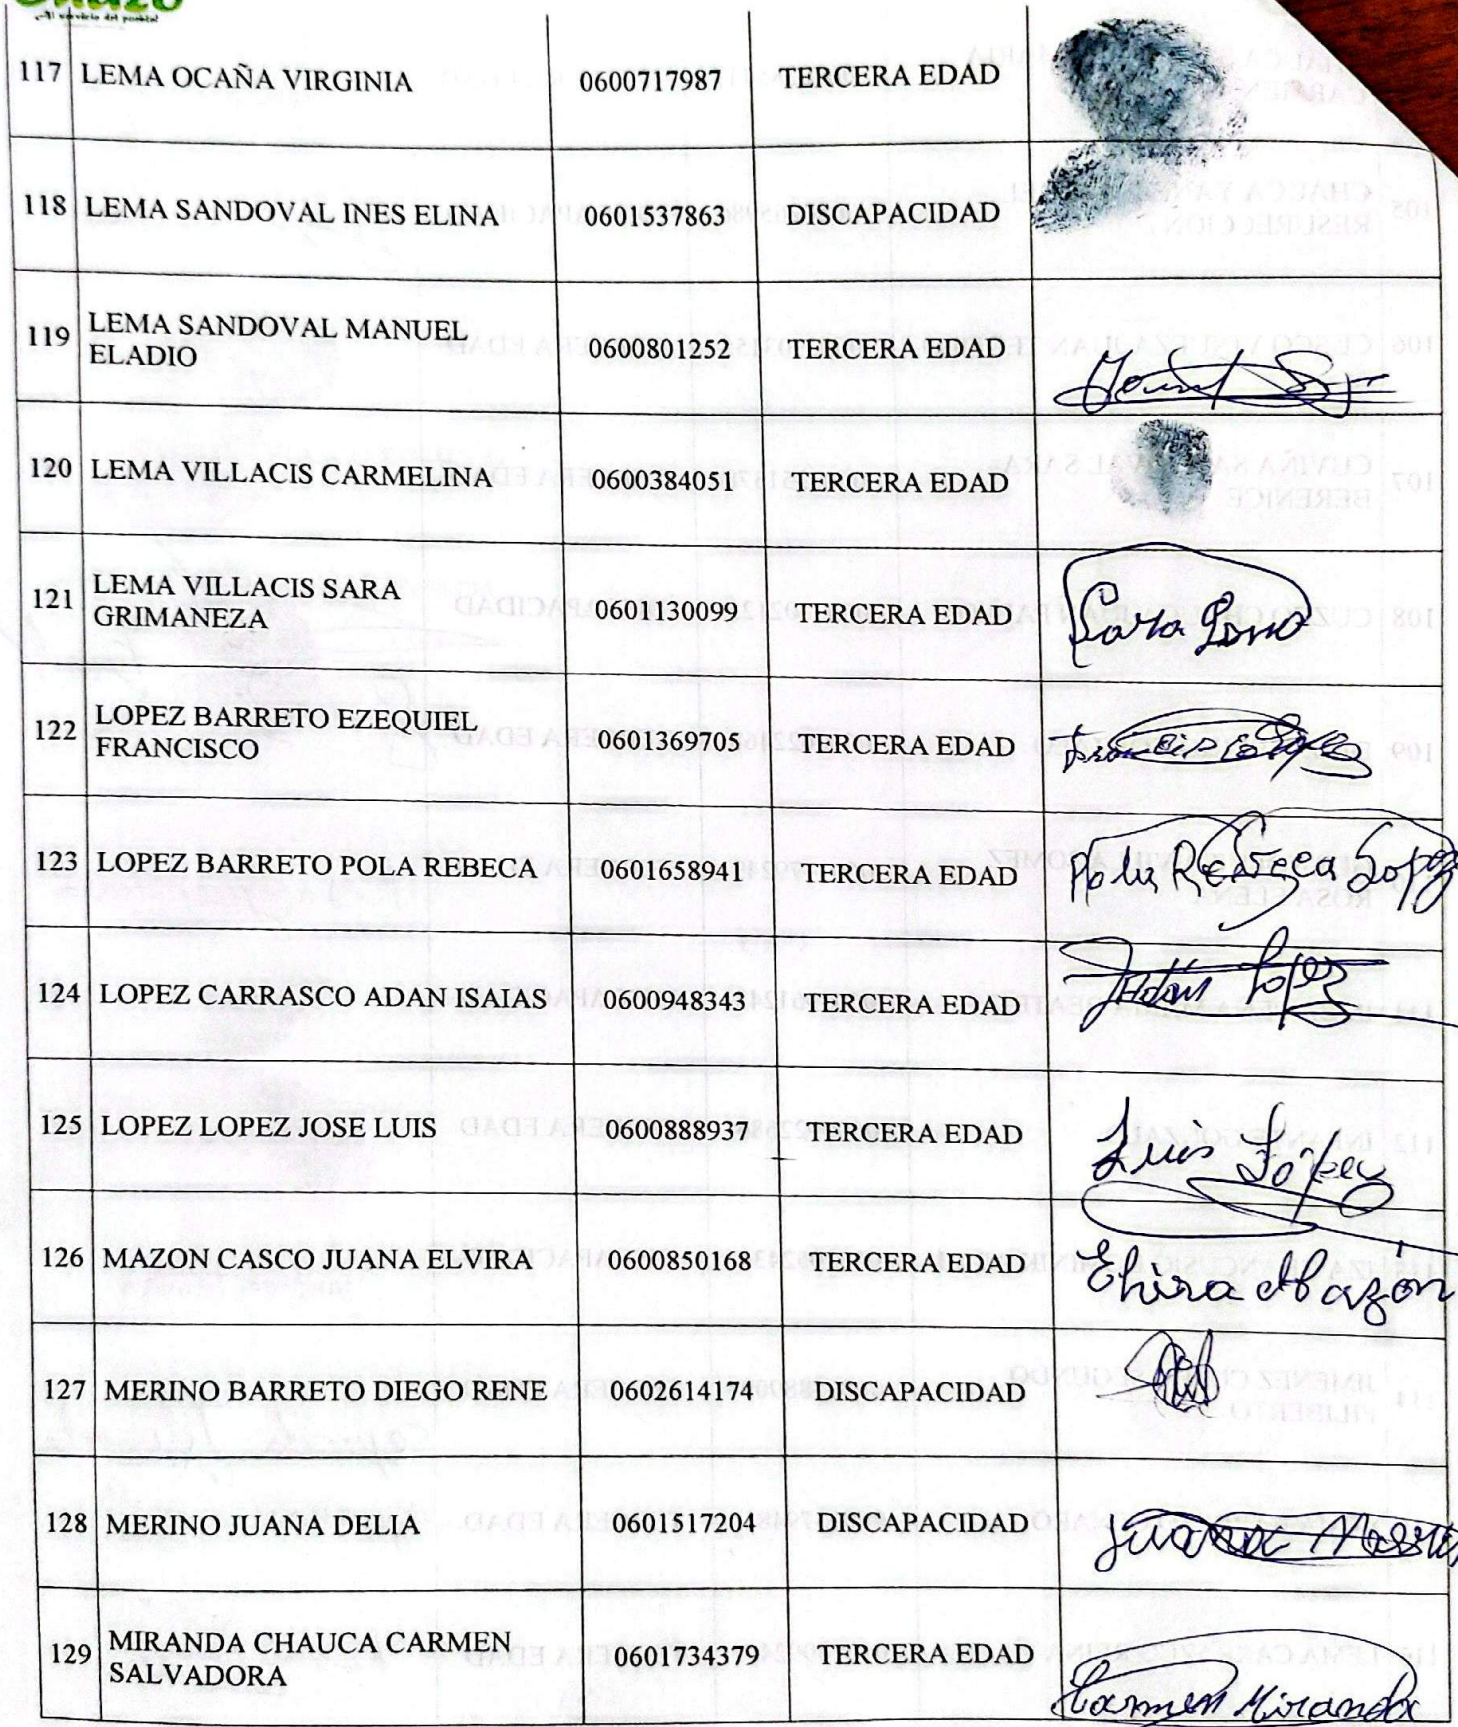 ¡Al servicio del pueblo!
117 LEMA OCAÑA VIRGINIA 0600717987 TERCERA EDAD
118 LEMA SANDOVAL INES ELINA 0601537863 DISCAPACIDAD
119 LEMA SANDOVAL MANUEL
ELADIO 0600801252 TERCERA EDAD
120 LEMA VILLACIS CARMELINA 0600384051 TERCERA EDAD
121 LEMA VILLACIS SARA
GRIMANEZA 0601130099 TERCERA EDAD Sara Lema
122 LOPEZ BARRETO EZEQUIEL
FRANCISCO 0601369705 TERCERA EDAD
123 LOPEZ BARRETO POLA REBECA 0601658941 TERCERA EDAD Pola Rebeca Lopez
124 LOPEZ CARRASCO ADAN ISAIAS 0600948343 TERCERA EDAD Adán Lopez
125 LOPEZ LOPEZ JOSE LUIS 0600888937 TERCERA EDAD Luis López
126 MAZON CASCO JUANA ELVIRA 0600850168 TERCERA EDAD Elvira Mazón
127 MERINO BARRETO DIEGO RENE 0602614174 DISCAPACIDAD
128 MERINO JUANA DELIA 0601517204 DISCAPACIDAD Juana
129 MIRANDA CHAUCA CARMEN
SALVADORA 0601734379 TERCERA EDAD Carmen Miranda